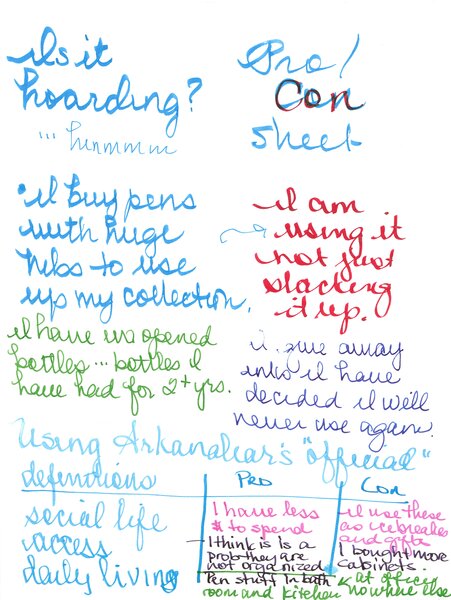 Is it
hoarding?
... hmmmm
Pro/
Con
sheet
• I buy pens
with huge
nibs to use
up my collection.
I am
using it
not just
stacking
it up.
I have unopened
bottles ... bottles I
have had for 2+ yrs.
I give away
inks I have
decided I will
never use again.
Using Arkanabar's "official"
definitions
Pro
Con
social life
access
daily living
I have less
$ to spend
I think is is a
prob they are
not organized
Pen stuff in bath
room and kitchen
I use these
as icebreakers
and gifts
I bought more
cabinets.
at office
nowhere else